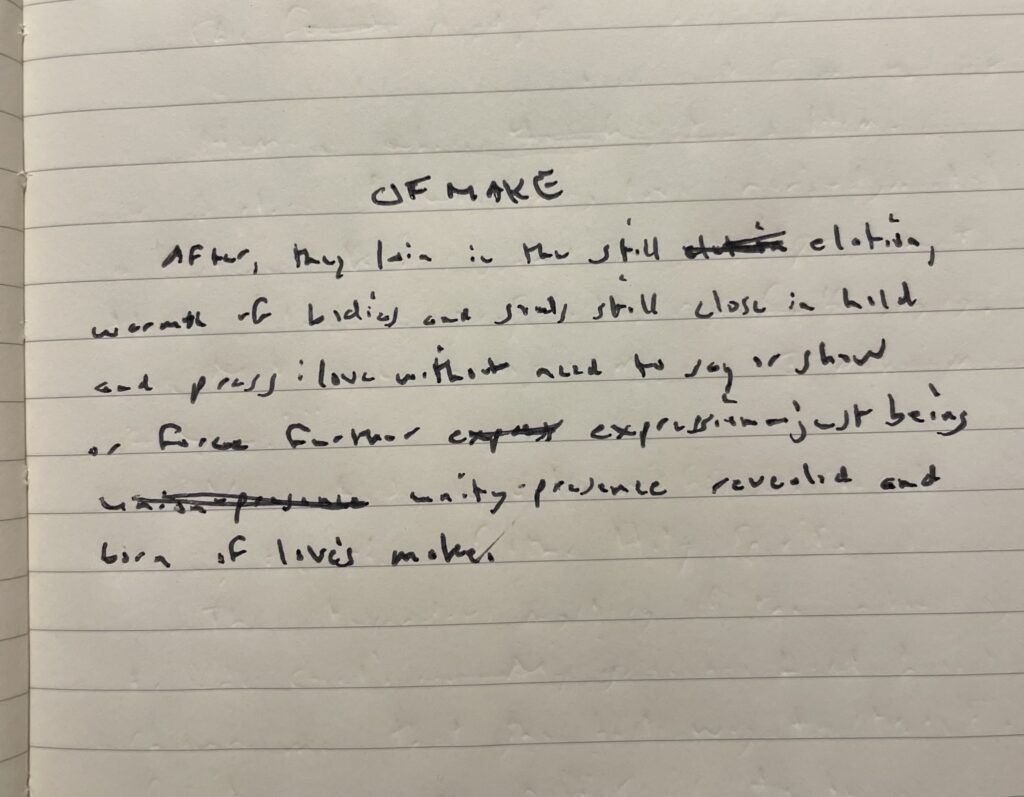 OF MAKE
After, they lain in the still elation,
warmth of bodies and souls still close in hold
and press: love without need to say or show
or force further expression—just being
unity-presence revealed and
born of love's make.